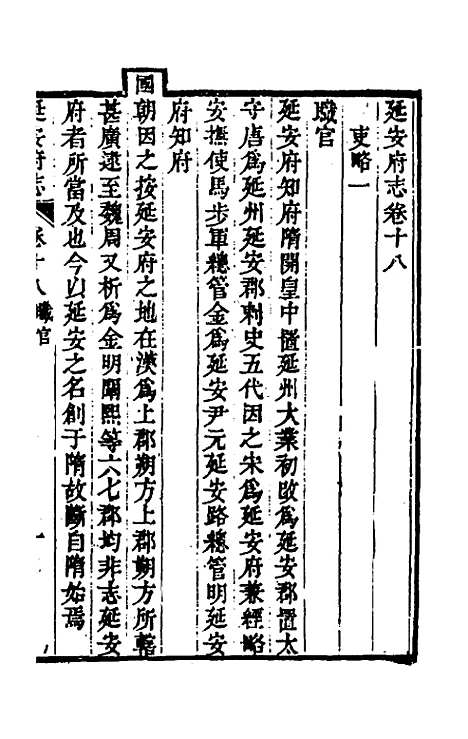 延安府志卷十八
吏略一
職官
延安府知府隋開皇中置延州大業初改爲延安郡置太
守唐爲延州延安郡刺史五代因之宋爲延安府兼經略
安撫使馬步軍總管金爲延安尹元延安路總管明延安
府知府
國朝因之按延安府之地在漢爲上郡朔方上郡朔方所轄
甚廣逮至魏周又析爲金明闡熙等六七郡均非志延安
府者所當及也今以延安之名創于隋故斷自隋始焉
延安府志 卷十八 職官 一